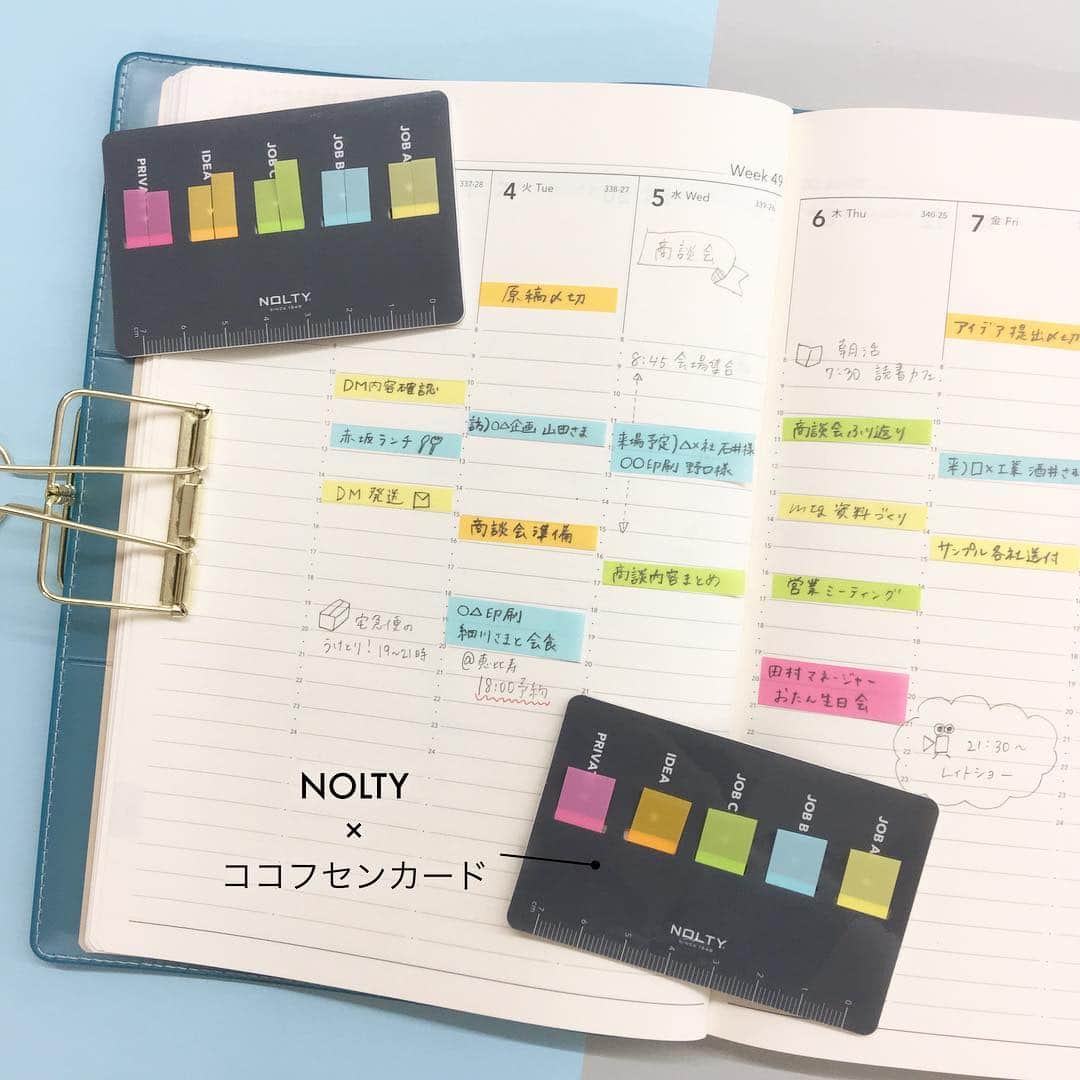 PRIVAT
IDEA
JOB C
JOB B
JOB A
NOLTY
SINCE 1949
cm 7 6 5 4 3 2 1 0
Week 49
337-28
4 火 Tue 338-27
5 水 Wed 339-26
6 木 Thu 340-25
7 金 Fri
商談会
原稿〆切
アイデア提出〆切
8:45 会場集合
朝活
7:30 読書カフェ
DM内容確認
赤坂ランチ
訪)○△企画 山田さま
来場予定)△×社 石井様
○○印刷 野口様
商談会ふり返り
来)□×工業 酒井さま
DM発送
商談会準備
資料づくり
サンプル各社送付
商談内容まとめ
営業ミーティング
宅急便の
うけとり!19~21時
○△印刷
細川さまと会食
@恵比寿
18:00予約
田村マネージャー
おたん生日会
21:30~
レイトショー
NOLTY
×
ココフセンカード
PRIVAT
IDEA
JOB C
JOB B
JOB A
NOLTY
SINCE 1949
cm 7 6 5 4 3 2 1 0